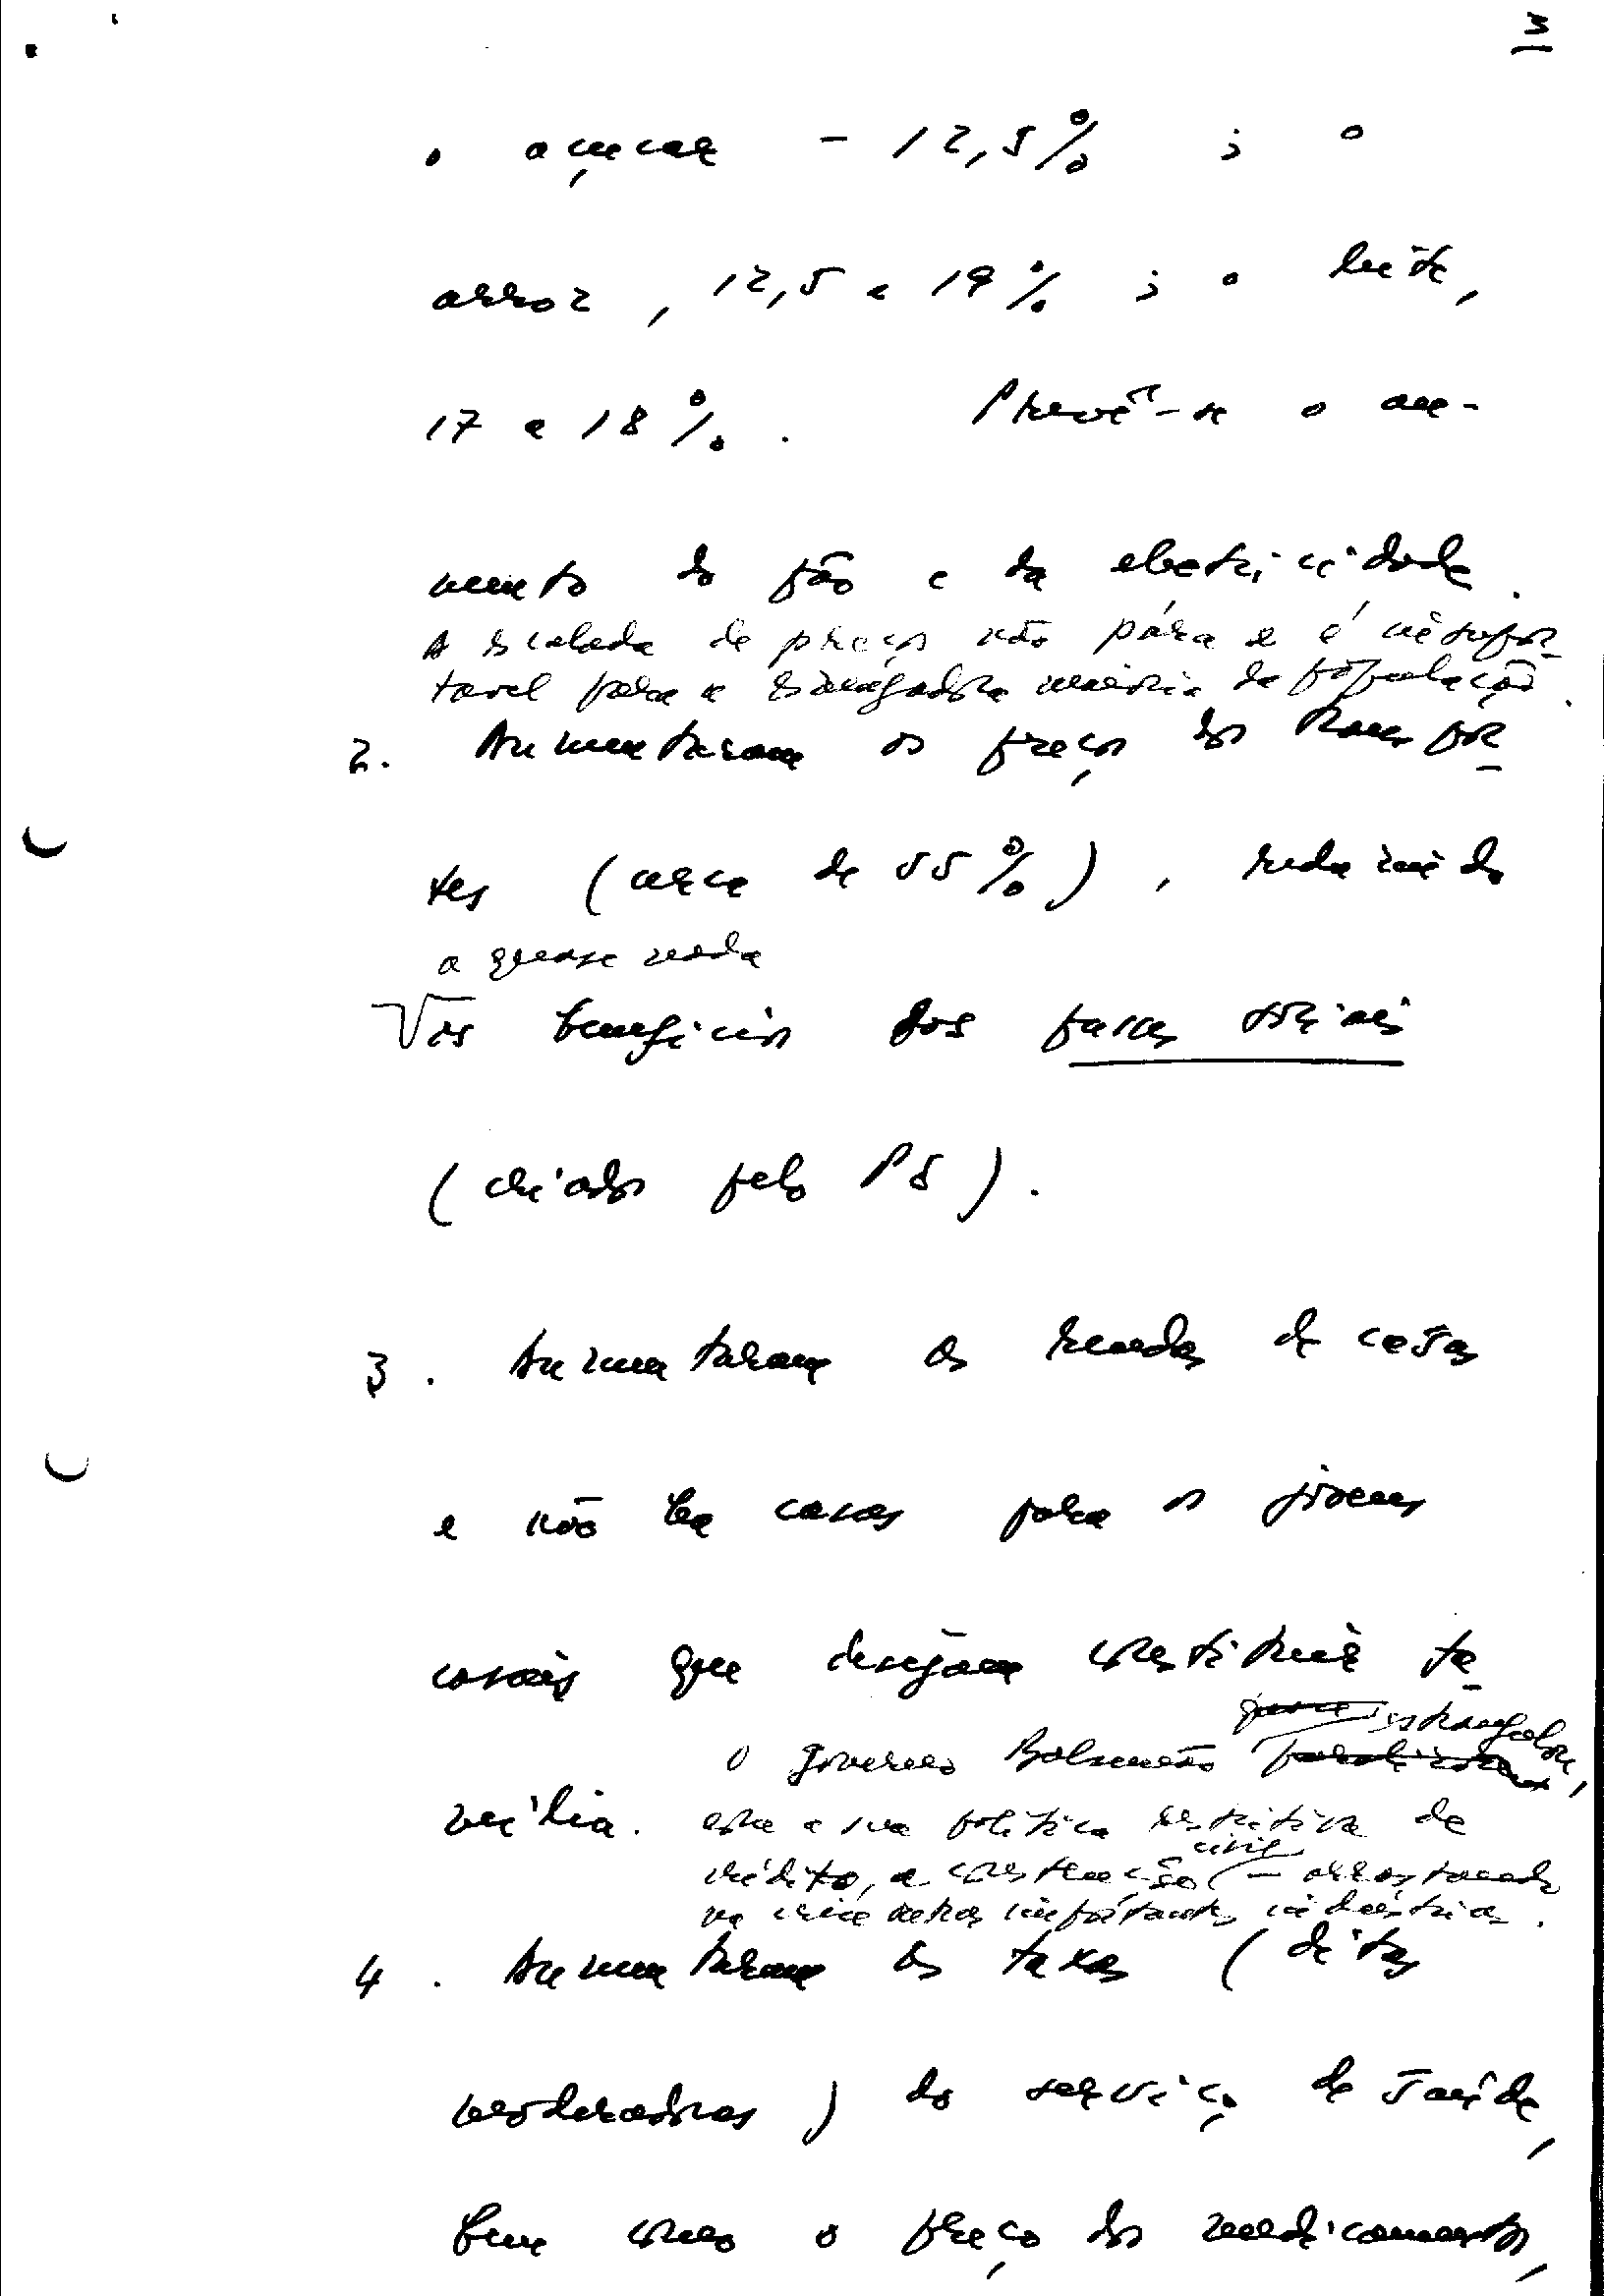 3
o açucar - 12,5% ; o
arroz, 12,5 e 19% ; o leite,
17 e 18%. Prevê-se o au-
mento do pão e da electricidade.
A escalada de preços não pára e é insupor-
tavel para a esmagadora maioria da população.
2. Aumentaram os preços dos transpor-
tes (cerca de 55%), reduzindo
a quase nada
os beneficios dos passes sociais
(criados pelo PS).
3. Aumentaram as rendas de casas
e não ha casas para os jovens
casais que desejam constituir fa-
estrangulou,
O governo Balsemão
milia. com a sua politica restritiva de
civil
crédito, a construção - arrastando
na crise outras importantes industrias.
4. Aumentaram as taxas (ditas
moderadoras) do serviço de saúde,
bem como o preço dos medicamentos,